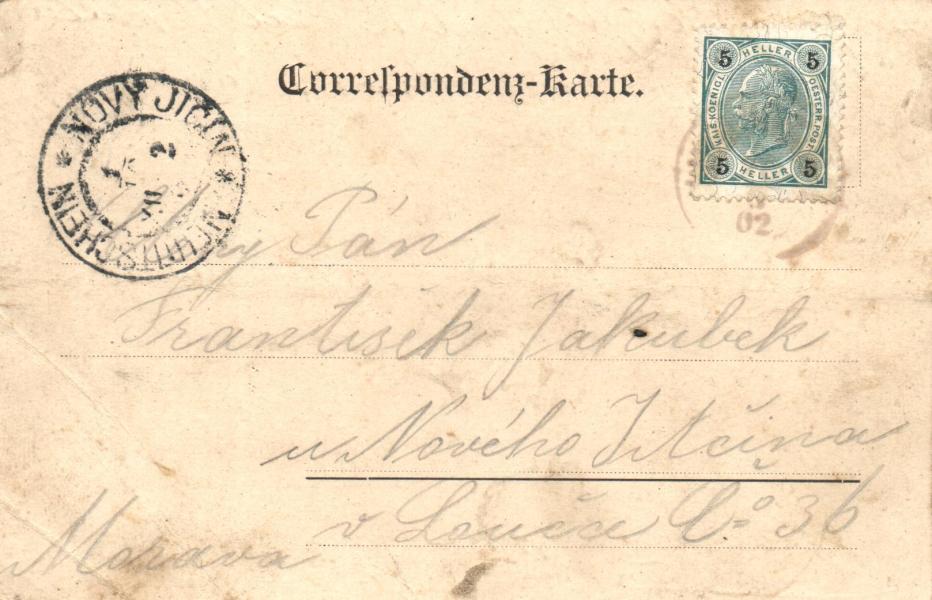 Correspondenz-Karte.
5 HELLER 5
KAIS. KOENIGL. OESTERR. POST.
5 HELLER 5
NOVÝ JIČÍN
NEUTITSCHEIN
02
Pán
František Jakubek
u Nového Jitčína
v Loučce Čo 36
Morava